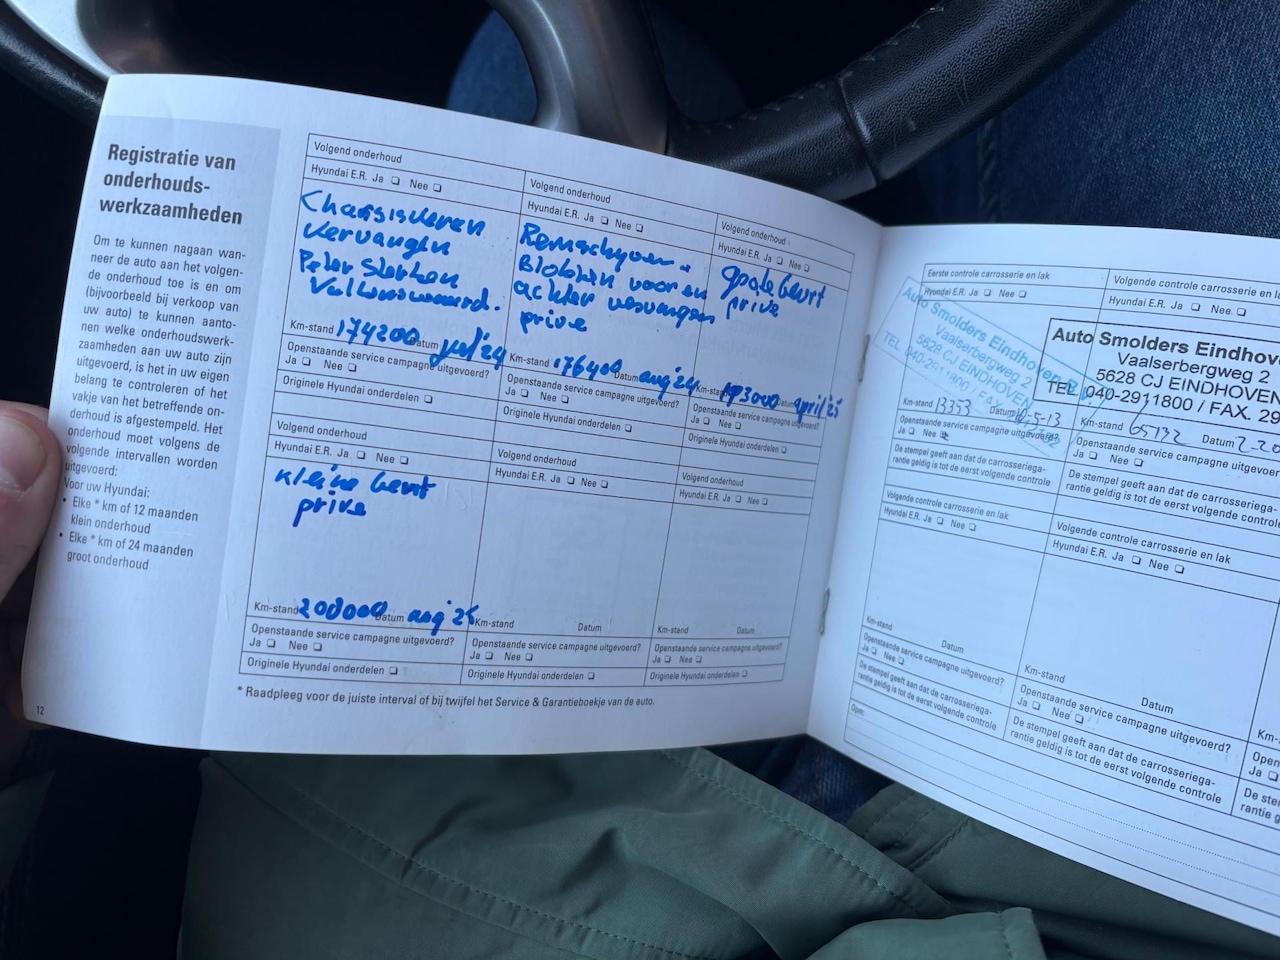 Registratie van
onderhouds-
werkzaamheden
Om te kunnen nagaan wan-
neer de auto aan het volgen-
de onderhoud toe is en om
(bijvoorbeeld bij verkoop van
uw auto) te kunnen aanto-
nen welke onderhoudswerk-
zaamheden aan uw auto zijn
uitgevoerd, is het in uw eigen
belang te controleren of het
vakje van het betreffende on-
derhoud is afgestempeld. Het
onderhoud moet volgens de
volgende intervallen worden
uitgevoerd:
Voor uw Hyundai:
• Elke * km of 12 maanden
klein onderhoud
• Elke * km of 24 maanden
groot onderhoud
12
Volgend onderhoud
Hyundai E.R. Ja ❏ Nee ❏
vervangen
Peter
Km-stand 174200 Datum juli'24
Openstaande service campagne uitgevoerd?
Ja ❏ Nee ❏
Originele Hyundai onderdelen ❏
Volgend onderhoud
Hyundai E.R. Ja ❏ Nee ❏
Remschijven +
Blokken voor en
achter vervangen
prive
Km-stand 176400 Datum aug'24
Openstaande service campagne uitgevoerd?
Ja ❏ Nee ❏
Originele Hyundai onderdelen ❏
Volgend onderhoud
Hyundai E.R. Ja ❏ Nee ❏
beurt
prive
Km-stand Datum april'25
Openstaande service campagne uitgevoerd?
Ja ❏ Nee ❏
Originele Hyundai onderdelen ❏
Volgend onderhoud
Hyundai E.R. Ja ❏ Nee ❏
kleine beurt
prive
Km-stand 200000 Datum aug'25
Openstaande service campagne uitgevoerd?
Ja ❏ Nee ❏
Originele Hyundai onderdelen ❏
Volgend onderhoud
Hyundai E.R. Ja ❏ Nee ❏
Km-stand Datum
Openstaande service campagne uitgevoerd?
Ja ❏ Nee ❏
Originele Hyundai onderdelen ❏
Volgend onderhoud
Hyundai E.R. Ja ❏ Nee ❏
Km-stand Datum
Openstaande service campagne uitgevoerd?
Ja ❏ Nee ❏
Originele Hyundai onderdelen ❏
* Raadpleeg voor de juiste interval of bij twijfel het Service & Garantieboekje van de auto.
Eerste controle carrosserie en lak
Hyundai E.R. Ja ❏ Nee ❏
Auto Smolders Eindhoven
Vaalserbergweg 2
5628 CJ EINDHOVEN
TEL. 040-2911800 / FAX.
Km-stand 13353 Datum 10-5-13
Openstaande service campagne uitgevoerd?
Ja ❏ Nee
De stempel geeft aan dat de carrosseriega-
rantie geldig is tot de eerst volgende controle
Volgende controle carrosserie en
Hyundai E.R. Ja ❏ Nee ❏
Auto Smolders Eindhov
Vaalserbergweg 2
5628 CJ EINDHOVEN
TEL. 040-2911800 / FAX. 29
Km-stand 65132 Datum
Openstaande service campagne uitgevoer
Ja ❏ Nee ❏
De stempel geeft aan dat de carrosseriega-
rantie geldig is tot de eerst volgende
Volgende controle carrosserie en lak
Hyundai E.R. Ja ❏ Nee ❏
Km-stand Datum
Openstaande service campagne uitgevoerd?
Ja ❏ Nee ❏
De stempel geeft aan dat de carrosseriega-
rantie geldig is tot de eerst volgende controle
Volgende controle carrosserie en lak
Hyundai E.R. Ja ❏ Nee ❏
Km-stand Datum
Openstaande service campagne uitgevoerd?
Ja ❏ Nee ❏
De stempel geeft aan dat de carrosseriega-
rantie geldig is tot de eerst volgende controle
Km-
Open
Ja ❏
De ste
rantie g
Opm: